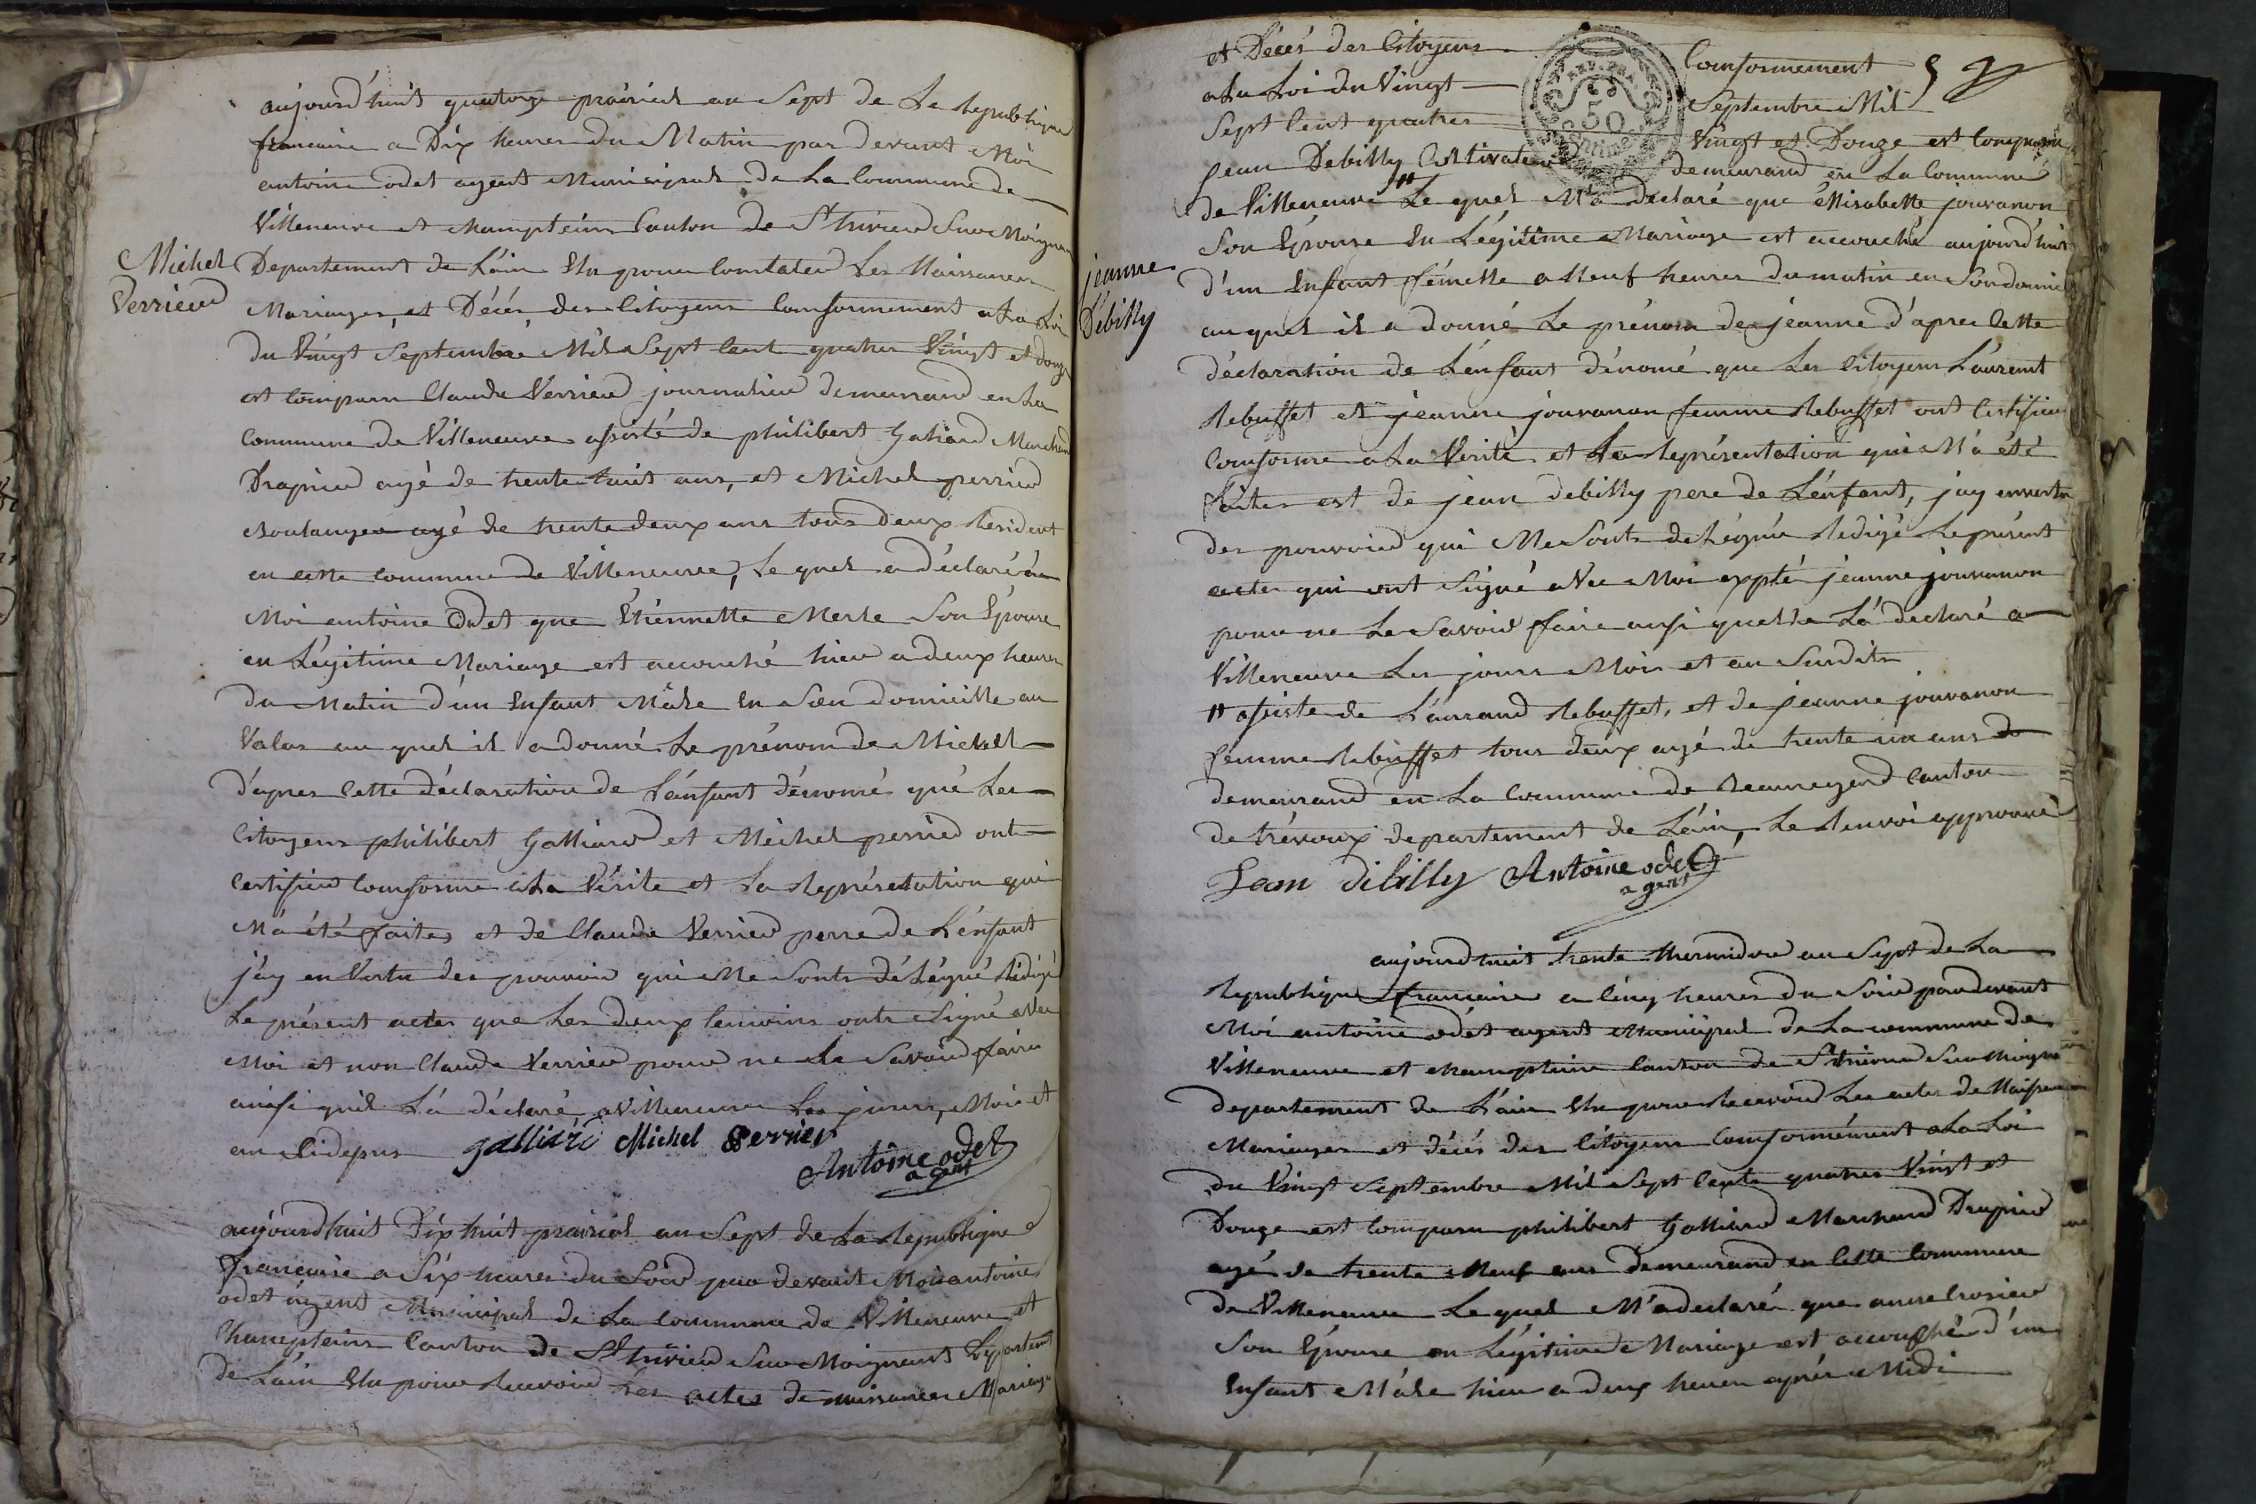 aujourd'huit quatorze prairial an Sept de La Republique
francaise a Dix heures du Matin par devant Moi
antoine odet agent Municipal de La Commune de
Villeneuve et Champteins Canton de St trivier Sur Moignans
Michel
Verrier
Departement de L'ain Elu pour Constater Les Naissances
Mariages, et Décés, des Citoyens Comformement a La Loi
du Vingt Septembre Mil Sept Cent quatres Vingt et douze
est Comparu Claude Verrier journalier demeurand en La
Commune de Villeneuve assisté de philibert Galliard Marchand
Drapier agé de trente huit ans, et Michel perrier
Boulanger agé de trente deux ans tous deux Resident
en cette commune de Villeneuve, Le quel a déclaré a
Moi antoine Odet que Etiennette Merle Son Epouse
en Légitime Mariage est accouché hier a deux heures
du Matin d'un Enfant Mâle En Son domicille au
Valas au quel il a donné Le prénom de Michel
d'apres Cette déclaration de L'énfant dénomé qué Les
Citoyens philibert Galliard et Michel perrier ont
Certifier Comforme a La Vérite et La Représentation qui
M'a été faites et de Claude Verrier perre de L'énfant
j'ay en Vertu des pouvoir qui Me Sonts délégué Rédigé
Le présent actes que Les deux temoins onts Signé avec
Moi et non Claude Verrier pour ne Le Savoir faire
ainsi quil L'a déclaré a Villeneuve Les jours, Mois et
an Sidepus galliard Michel perrier
Antoine odet
agent
aujourdhuit Dix huit prairial an Sept de La Republique
francaise a Six heures du Soir par devant Moi antoine
odet agent Municipal de La Commune de Villeneuve et
Champteins Canton de St trivier Sur Moignans Departement
de L'ain Elu pour Recevoir Les actes de naissances Mariages
et Décés des Citoyens Comformement 5
a La Loi du Vingt Septembre Mil
Sept Cent quatres Vingt et Douze est Comparu
REP. FRA.
50
Jean Debilly Cultivateur demeurand en La Commune
de Villeneuve # Le quel M'a déclaré que élisabette jouvanon
jeanne
Débilly
Son Epouse En Légitime Mariage est accouché aujourd'huit
d'un Enfant fémelle a Neuf heures du matin en Son domicile
au quel il a donné Le prénom de jeanne d'apres Cette
déclaration de L'énfant dénomé que Les Citoyens Laurent
Rebuffet et jeanne jouvanon femme Rebuffet ont Certifier
Comforme a La Vérité et La Représentation qui M'a été
faites est de jean debilly pere de L'énfant, j'ay en vertu
des pouvoir qui Me Sonts délégués Rédigé Le présent
actes qui ont Signé avec Moi exepté jeanne jouvanon
pour ne Le Savoir faire ainsi quelle L'a déclaré a
Villeneuve Les jours Mois et an Susdits
# assiste de Laurand Rebuffet, et de jeanne jouvanon
femme Rebuffet tous deux agé de trente six ans
demeurand en La Commune de Beauregard Canton
de trévoux departement de L'ain, Le Renvoi approuvé
Jean dibilly Antoine odet
agent
aujourdhuit trente thermidor an Sept de La
Republique francaise a Cinq heures du Soir par devant
Moi antoine odet agent Municipal de La commune de
Villeneuve et Champteins Canton de St trivier Sur Moignans
departement de L'ain Elu pour Recevoir Les actes de Naissances
Mariages et décés des Citoyens Comformément a La Loi
du Vingt Septembre Mil Sept Cents quatres Vingt et
Douze est Comparu philibert Galliard Marchand Drapier
agé de trente Neuf ans Demeurand en Cette Commune
de Villeneuve Le quel M'a declaré que anne Crosier
Son Epouse en Légitime Mariage est accouché d'un
Enfant Mâle hier a deux heures aprés Midi